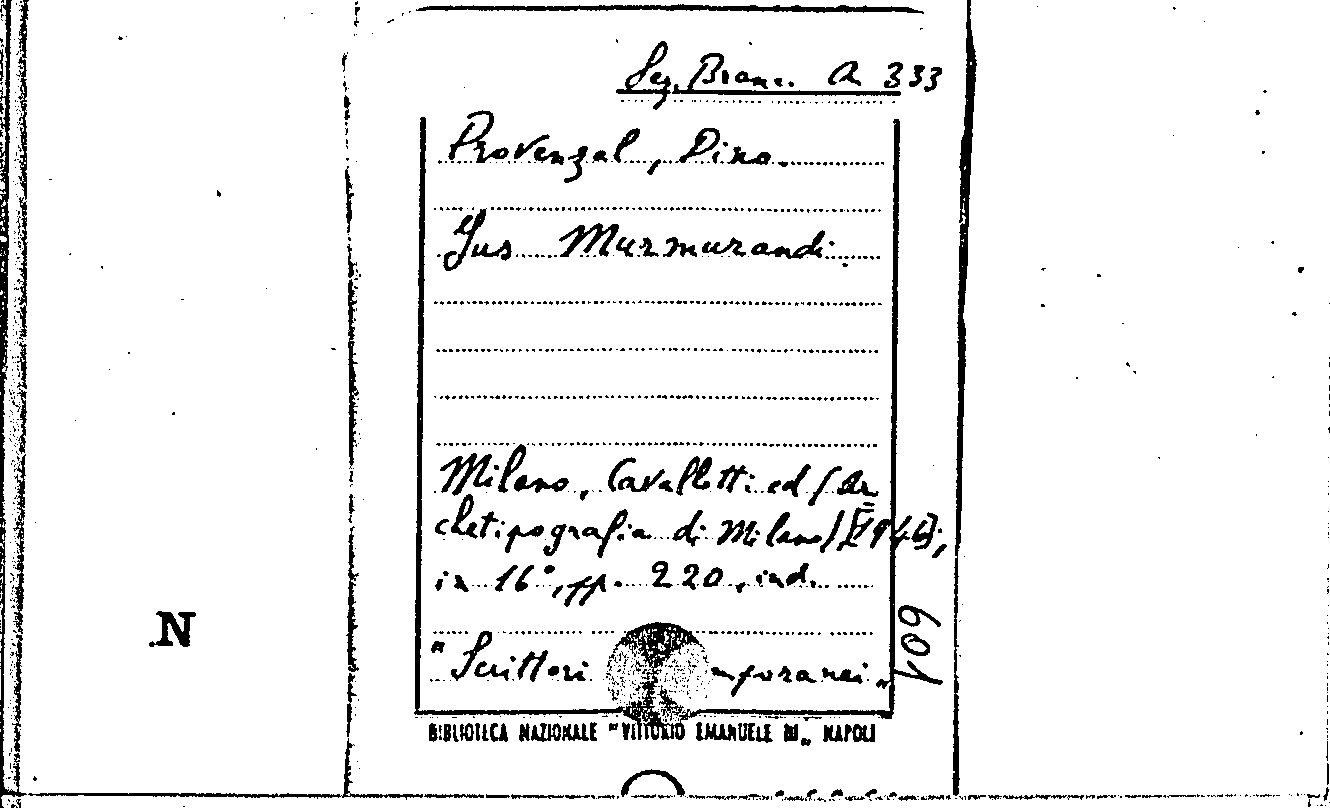 Sez. Branc. A 333
Provenzal, Dino.
Jus Murmurandi.
Milano, Cavallotti ed (Ar
chetipografia di Milano) [1946],
in 16°, pp. 220, ind.
"Scrittori mporanei"
601
N
BIBLIOTECA NAZIONALE "VITTORIO EMANUELE III" NAPOLI